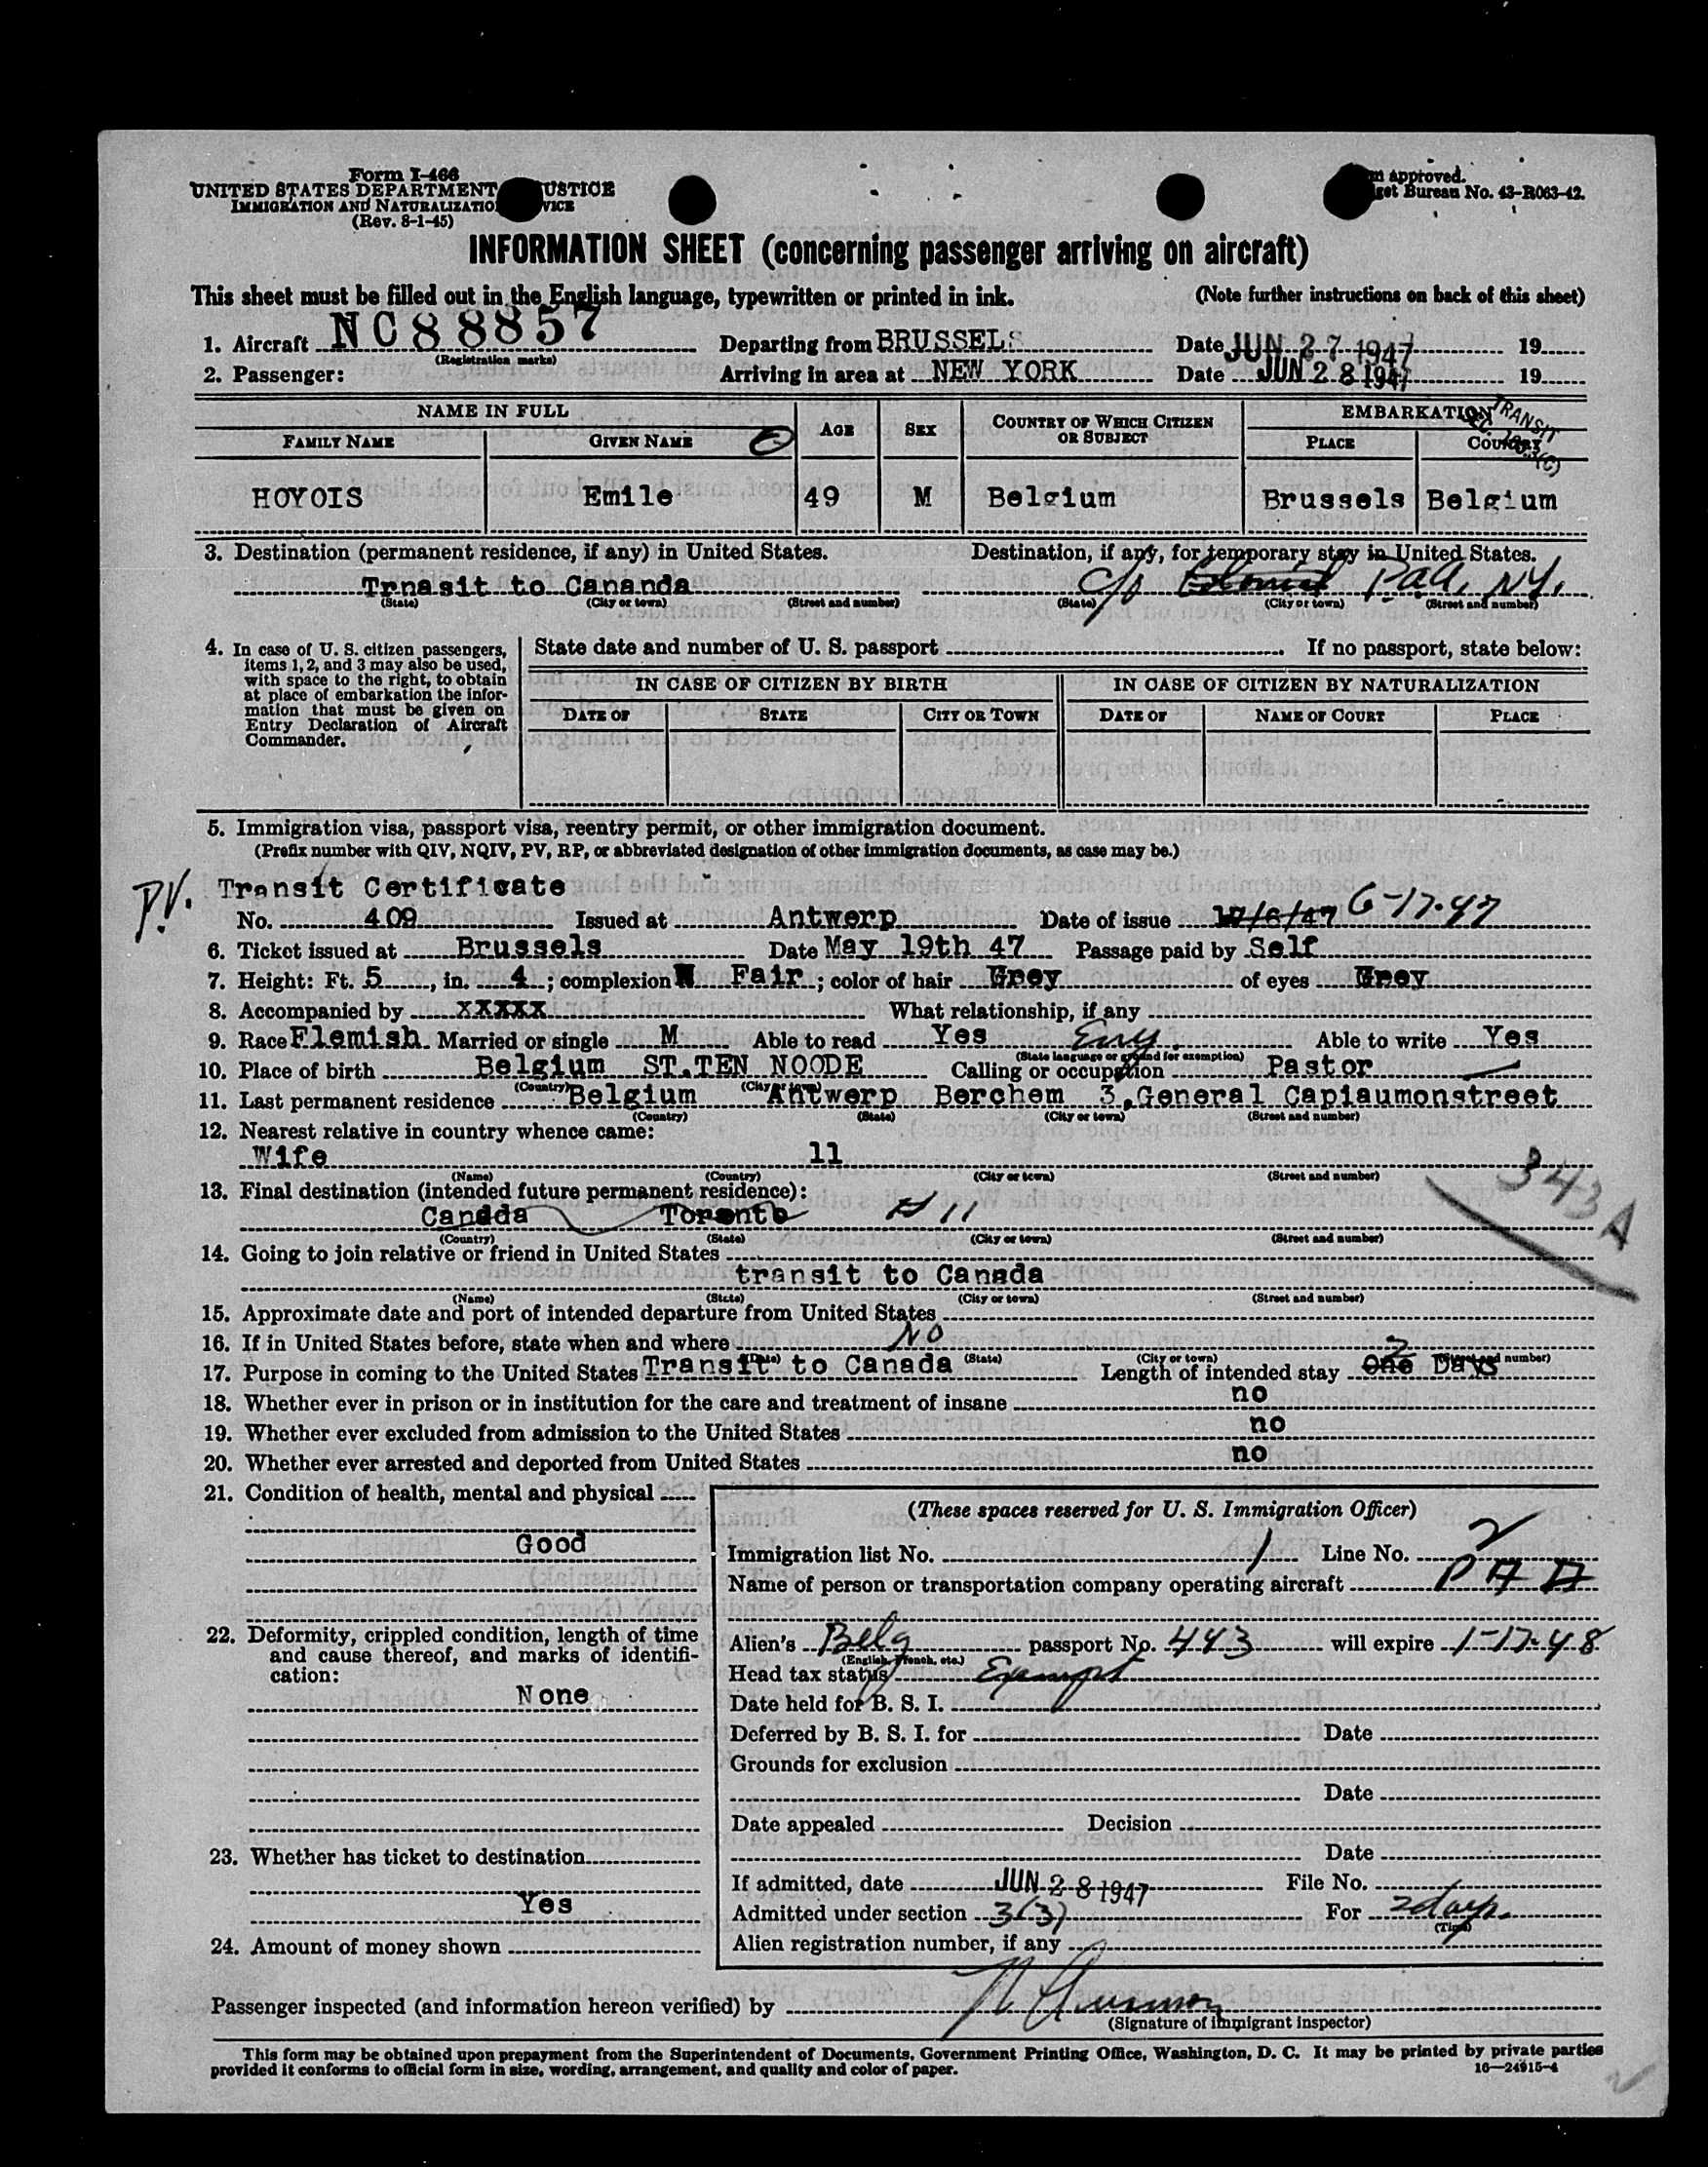 Form I-466
UNITED STATES DEPARTMENT JUSTICE
IMMIGRATION AND NATURALIZATION SERVICE
(Rev. 8-1-45)
Approved.
Bureau No. 43-R063-42.
INFORMATION SHEET (concerning passenger arriving on aircraft)
This sheet must be filled out in the English language, typewritten or printed in ink. (Note further instructions on back of this sheet)
1. Aircraft NC88857 Departing from BRUSSELS Date JUN 27 1947 19
(Registration marks)
2. Passenger: Arriving in area at NEW YORK Date JUN 28 1947 19
NAME IN FULL AGE SEX COUNTRY OF WHICH CITIZEN OR SUBJECT EMBARKATION
TRANSIT
SEC. 3(C)
FAMILY NAME GIVEN NAME PLACE COUNTRY
HOYOIS Emile 49 M Belgium Brussels Belgium
3. Destination (permanent residence, if any) in United States. Destination, if any, for temporary stay in United States.
Trnasit to Cananda c/o Colonial P.a.a. N.Y.
(State) (City or town) (Street and number) (State) (City or town) (Street and number)
4. In case of U. S. citizen passengers, items 1, 2, and 3 may also be used, with space to the right, to obtain at place of embarkation the information that must be given on Entry Declaration of Aircraft Commander.
State date and number of U. S. passport If no passport, state below:
IN CASE OF CITIZEN BY BIRTH IN CASE OF CITIZEN BY NATURALIZATION
DATE OF STATE CITY OR TOWN DATE OF NAME OF COURT PLACE
5. Immigration visa, passport visa, reentry permit, or other immigration document.
(Prefix number with QIV, NQIV, PV, RP, or abbreviated designation of other immigration documents, as case may be.)
P.V. Transit Certificate
No. 409 Issued at Antwerp Date of issue 17/6/47 6-17-47
6. Ticket issued at Brussels Date May 19th 47 Passage paid by Self
7. Height: Ft. 5, in. 4; complexion Fair; color of hair Grey of eyes Grey
8. Accompanied by XXXXX What relationship, if any
9. Race Flemish Married or single M Able to read Yes Eng. Able to write Yes
(State language or ground for exemption)
10. Place of birth Belgium ST.TEN NOODE Calling or occupation Pastor
(Country) (City or town)
11. Last permanent residence Belgium Antwerp Berchem 3,General Capiaumonstreet
(Country) (State) (City or town) (Street and number)
12. Nearest relative in country whence came:
Wife 11
(Name) (Country) (City or town) (Street and number)
343A
13. Final destination (intended future permanent residence):
Candda Toronto # 11
(Country) (State) (City or town) (Street and number)
14. Going to join relative or friend in United States
transit to Canada
(Name) (State) (City or town) (Street and number)
15. Approximate date and port of intended departure from United States
16. If in United States before, state when and where No
(Date) (State) (City or town) (Street and number)
17. Purpose in coming to the United States Transit to Canada Length of intended stay One 2 Days
18. Whether ever in prison or in institution for the care and treatment of insane no
19. Whether ever excluded from admission to the United States no
20. Whether ever arrested and deported from United States no
21. Condition of health, mental and physical
Good
22. Deformity, crippled condition, length of time and cause thereof, and marks of identification:
None
23. Whether has ticket to destination
Yes
24. Amount of money shown
(These spaces reserved for U. S. Immigration Officer)
Immigration list No. 1 Line No. 2
Name of person or transportation company operating aircraft PAA
Alien's Belg passport No. 443 will expire 1-17-48
(English, French, etc.)
Head tax status Exempt
Date held for B. S. I.
Deferred by B. S. I. for Date
Grounds for exclusion
Date
Date appealed Decision
Date
If admitted, date JUN 28 1947 File No.
Admitted under section 3(3) For 2 days.
(Time)
Alien registration number, if any
Passenger inspected (and information hereon verified) by
(Signature of immigrant inspector)
This form may be obtained upon prepayment from the Superintendent of Documents, Government Printing Office, Washington, D. C. It may be printed by private parties
provided it conforms to official form in size, wording, arrangement, and quality and color of paper. 16—24915-4